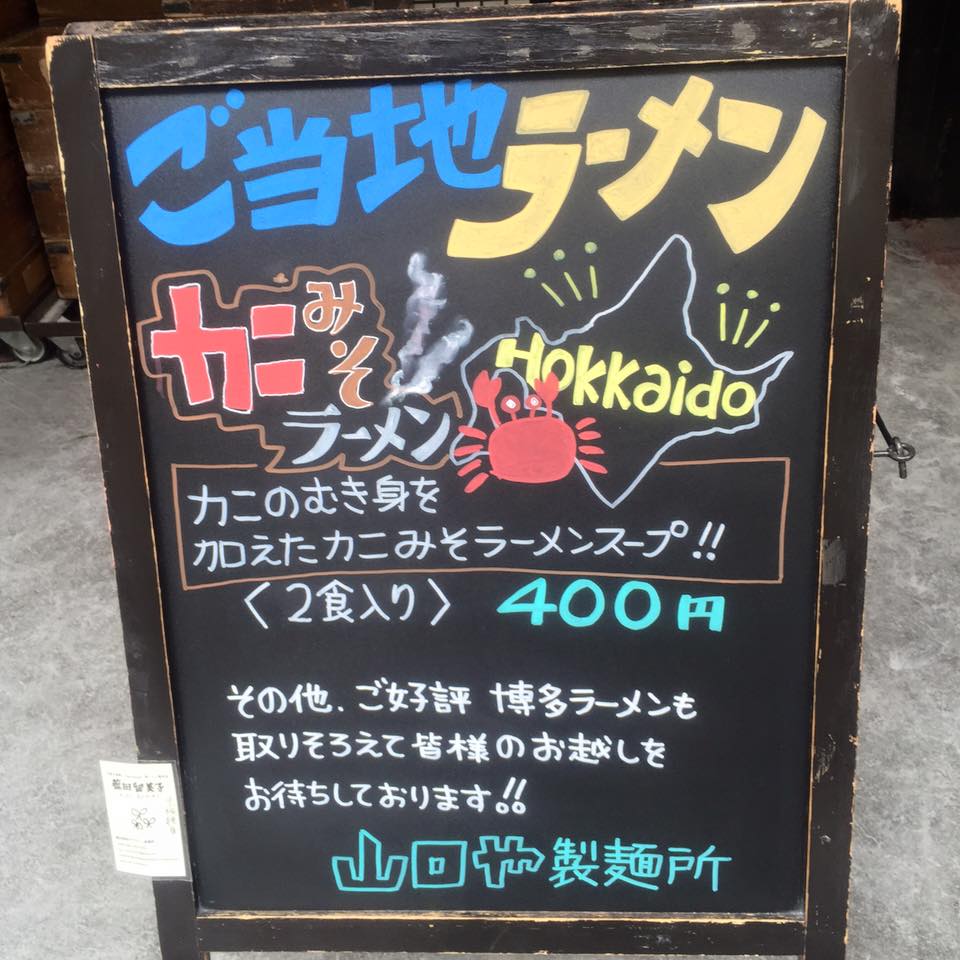 ご当地ラーメン
カニみそ
ラーメン
Hokkaido
カニのむき身を
加えたカニみそラーメンスープ!!
〈2食入り〉 400円
その他、ご好評 博多ラーメンも
取りそろえて皆様のお越しを
お待ちしております!!
山口や製麺所